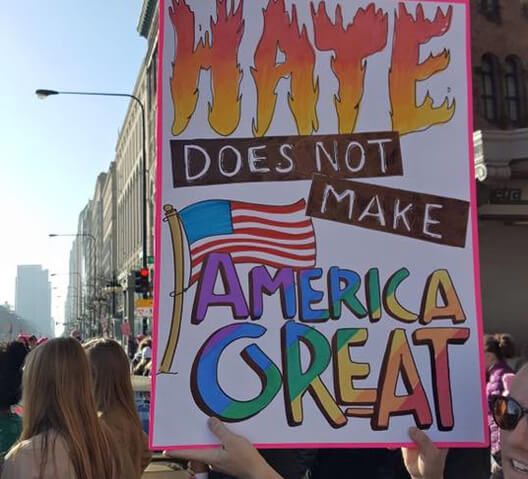 HATE
DOES NOT
MAKE
AMERICA
GREAT